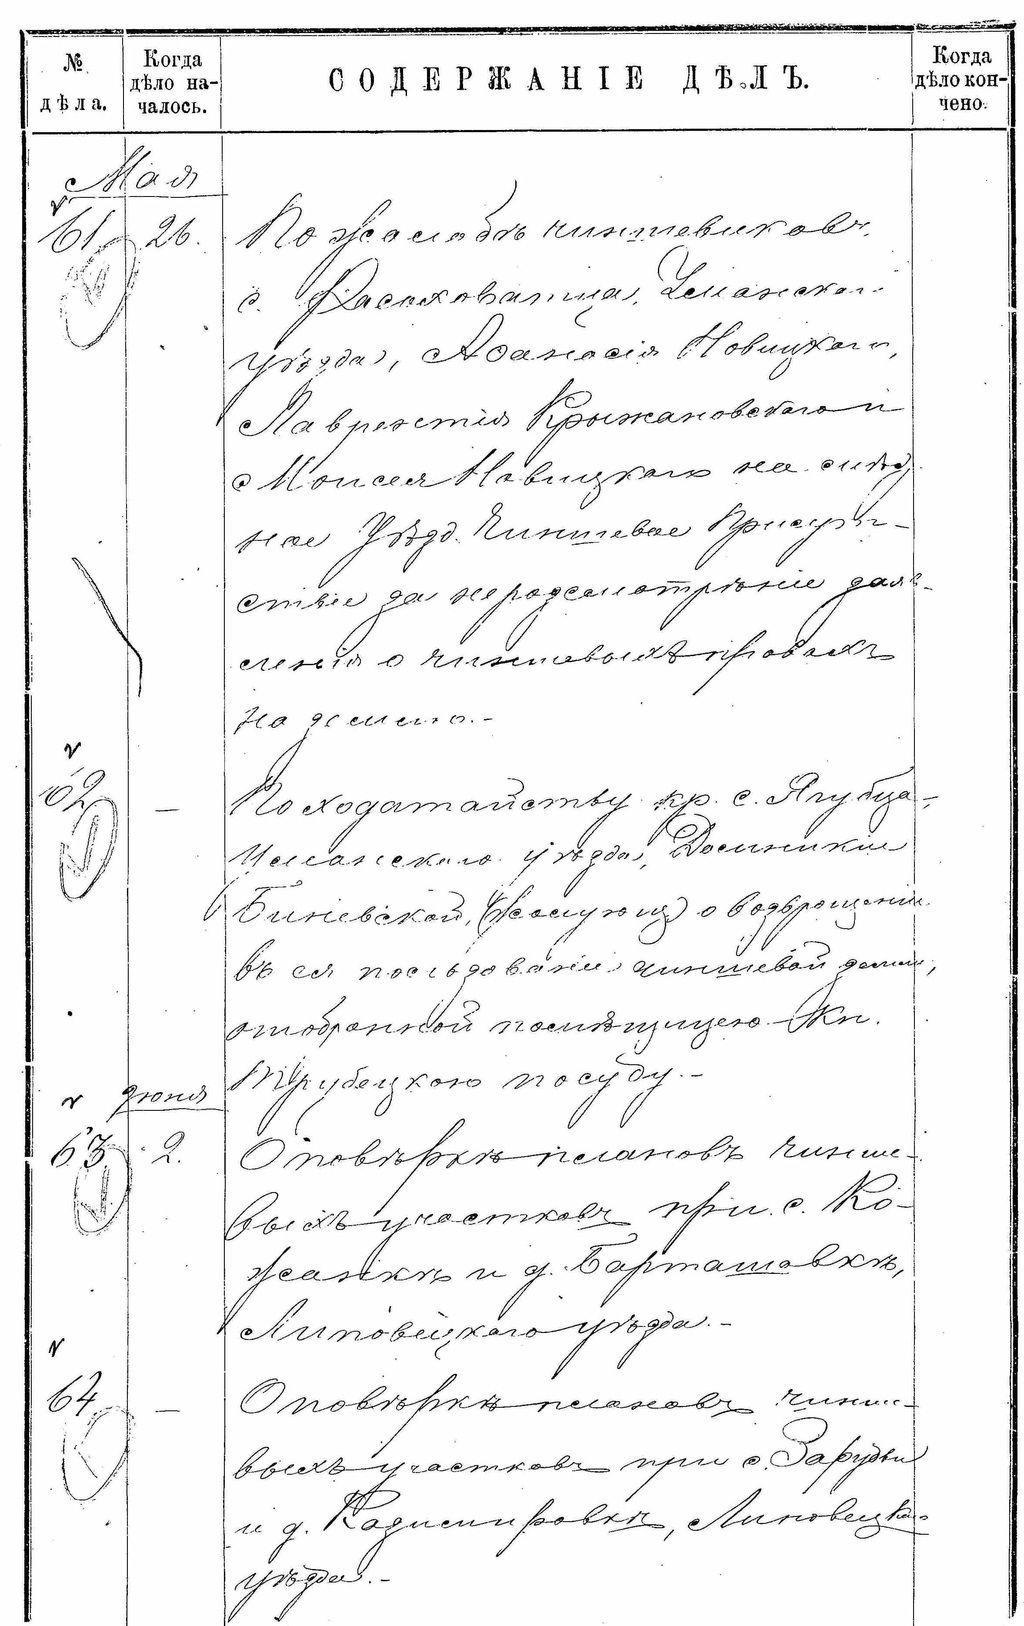 № дѣла.
Когда дѣло на-
чалось.
СОДЕРЖАНІЕ ДѢЛЪ.
Когда
дѣло кон-
чено.
Мая
61 26. По жалобѣ чиншевиковъ
с. Рассоховатца, Уманскаго
уѣзда, Афанасія Новицкаго,
Лаврентія Крыжановскаго и
Моисея Новицкаго на
ное Уѣзд. Чиншевое Присут-
ствіе за неразсмотрѣніе заяв-
ленія о чиншевыхъ правахъ
на землю.-
62 — По ходатайству кр. с. Ягубца,
Уманскаго уѣзда, Доминикіи
Биневской, о возвращеніи
въ ея чиншевой земли,
отобранной помѣщицею Кн.
Трубецкою по суду.-
Іюня
63 2. О повѣркѣ плановъ чинше-
выхъ участковъ при с. Ко-
жанкѣ и д. Барташовкѣ,
Липовецкаго уѣзда.-
64 — О повѣркѣ плановъ чинше-
выхъ участковъ при с. Зарудьи
и д. Кадимировкѣ, Липовецкаго
уѣзда.-